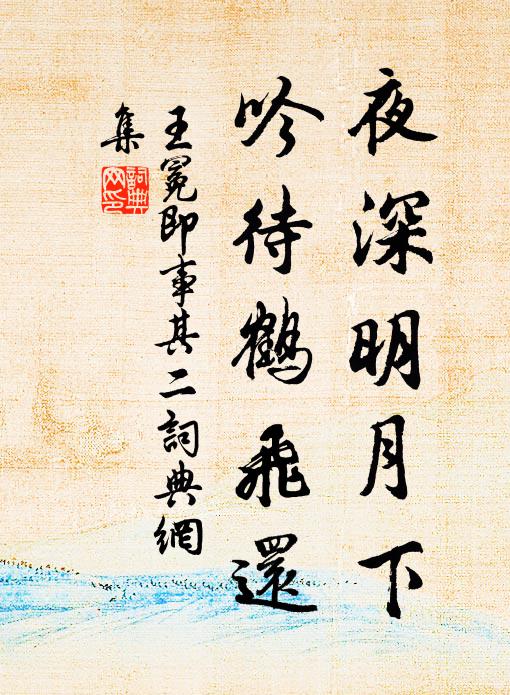 夜深明月下
吟待鶴飛還
王冕即事其二詞典網
集
詞典網印